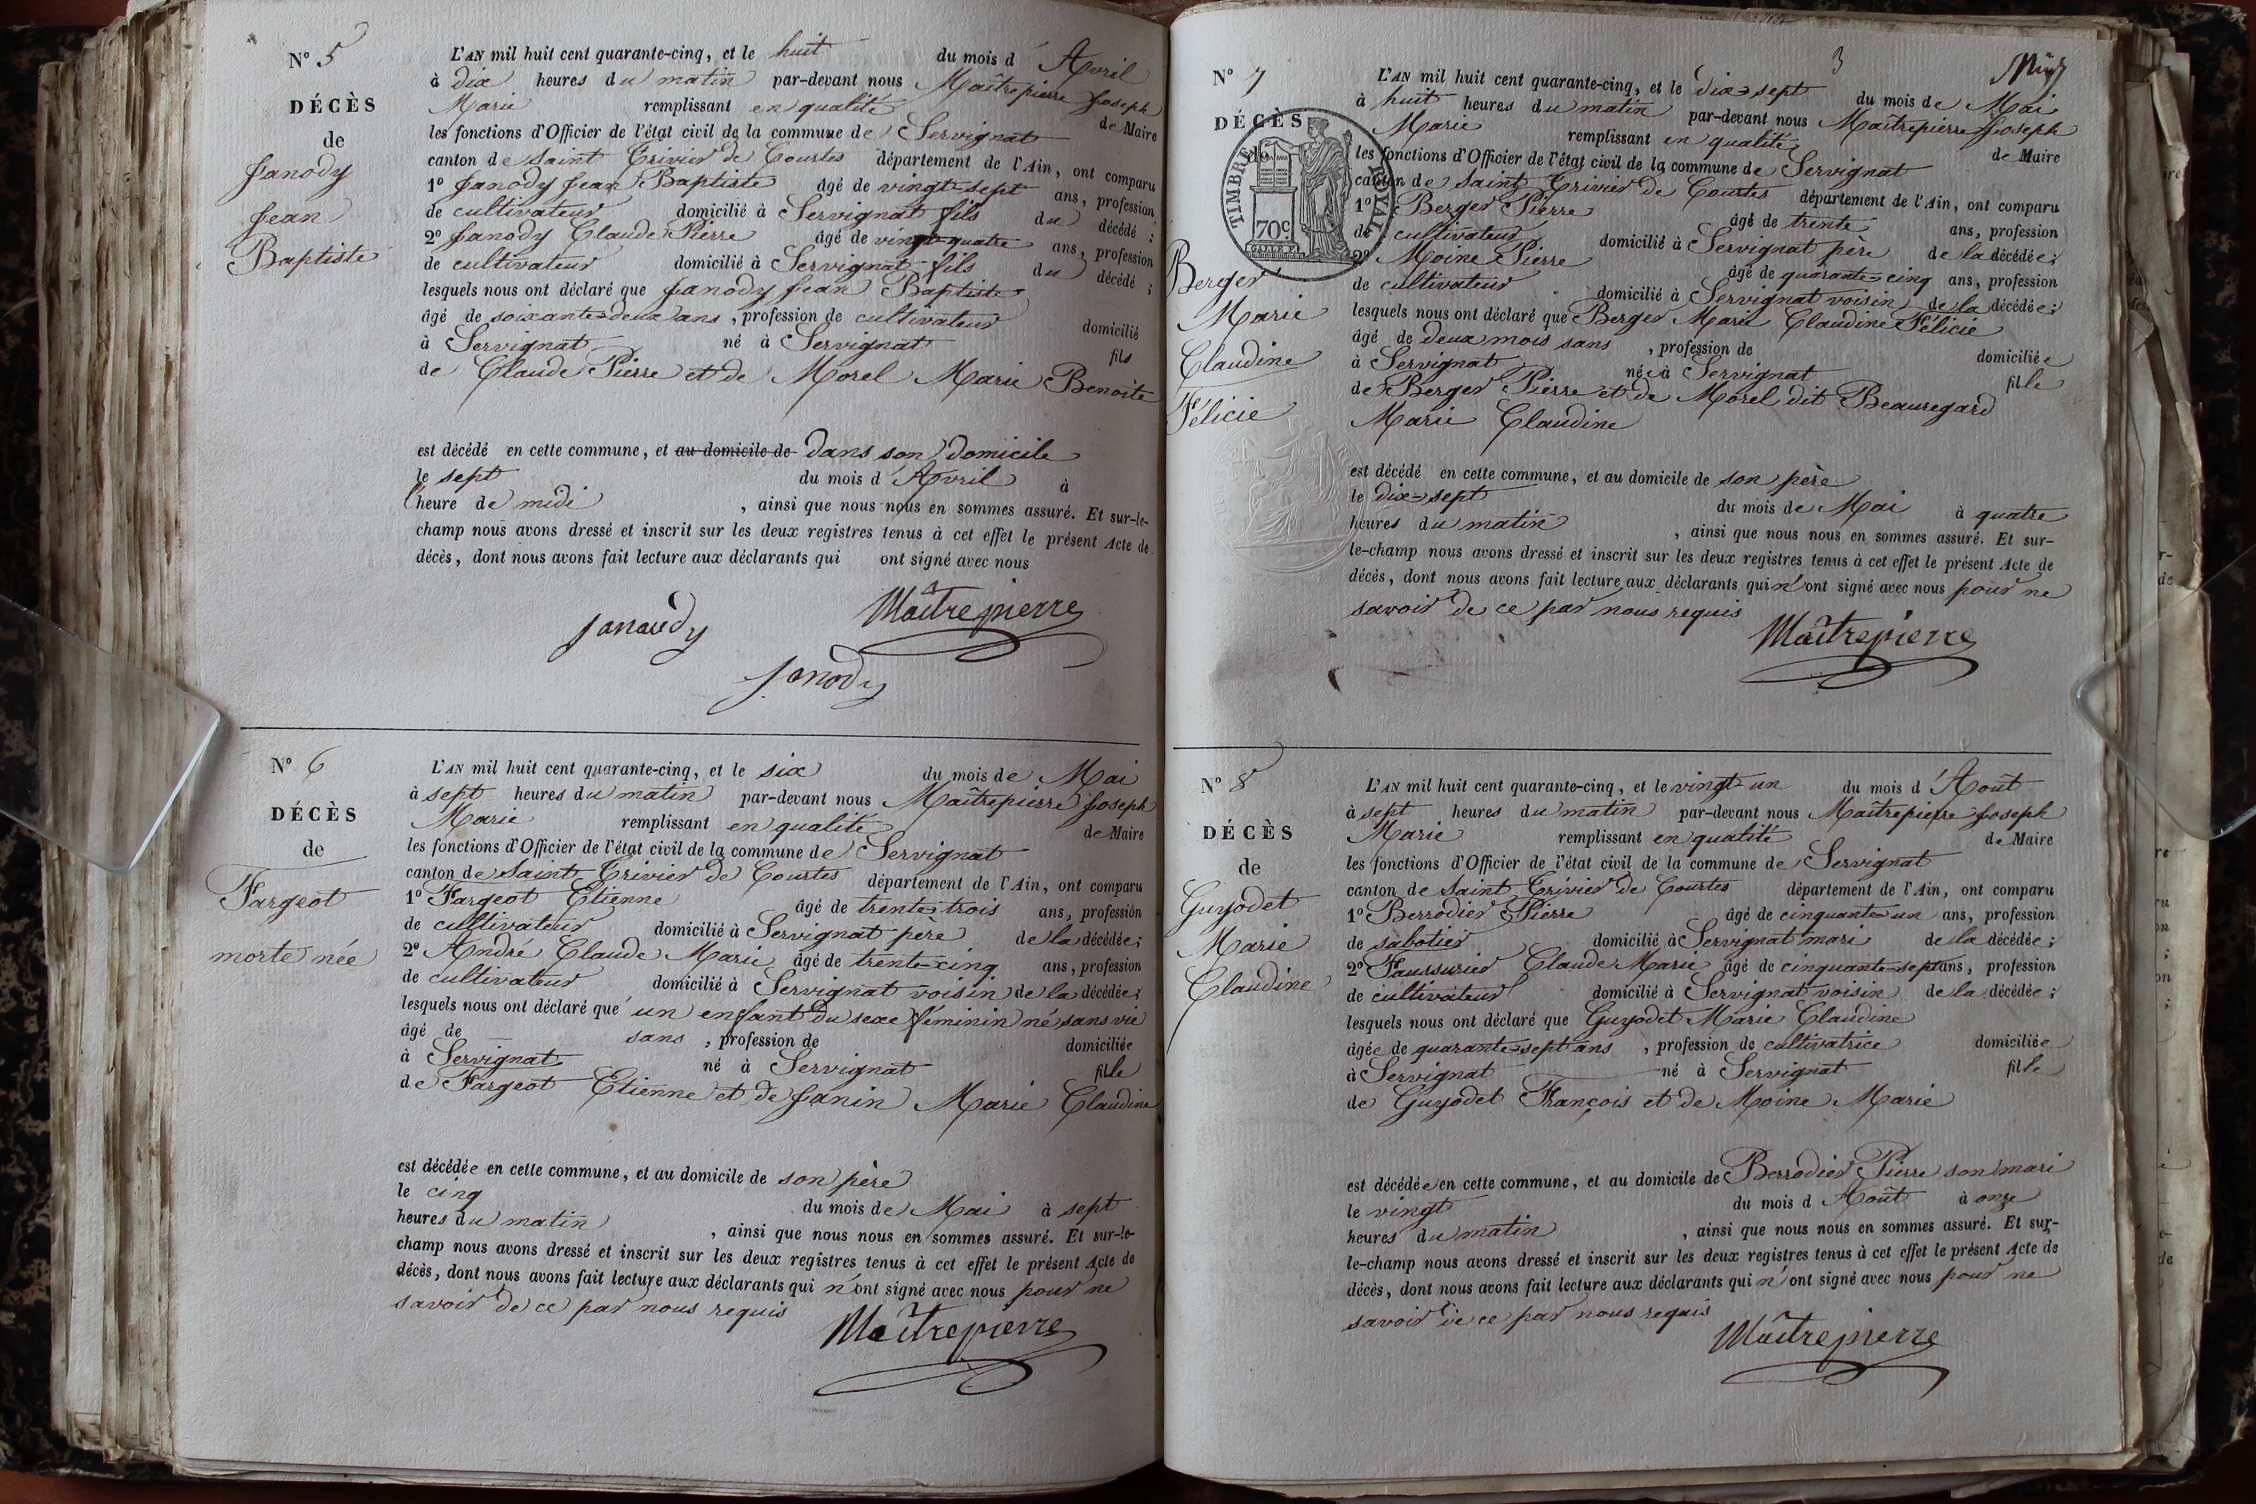 Nº 5
DÉCÈS
de
Janody
Jean
Baptiste
L'AN mil huit cent quarante-cinq, et le huit du mois d'Avril
à dix heures du matin par-devant nous Maîtrepierre Joseph
Marie remplissant en qualité de Maire
les fonctions d'Officier de l'état civil de la commune de Servignat
canton de Saint Trivier de Courtes département de l'Ain, ont comparu
1º Janody Jean Baptiste âgé de vingt-sept ans, profession
de cultivateur domicilié à Servignat fils du décédé ;
2º Janody Claude Pierre âgé de vingt-quatre ans, profession
de cultivateur domicilié à Servignat fils du décédé ;
lesquels nous ont déclaré que Janody Jean Baptiste
âgé de soixante-deux ans, profession de cultivateur domicilié
à Servignat né à Servignat fils
de Claude Pierre et de Morel Marie Benoite
est décédé en cette commune, et au domicile de dans son domicile
le sept du mois d'Avril à
l'heure de midi, ainsi que nous nous en sommes assuré. Et sur-le-
champ nous avons dressé et inscrit sur les deux registres tenus à cet effet le présent Acte de
décès, dont nous avons fait lecture aux déclarants qui ont signé avec nous
Janaudy Maîtrepierre
Janody
Nº 6
DÉCÈS
de
Fargeot
morte née
L'AN mil huit cent quarante-cinq, et le six du mois de Mai
à sept heures du matin par-devant nous Maîtrepierre Joseph
Marie remplissant en qualité de Maire
les fonctions d'Officier de l'état civil de la commune de Servignat
canton de Saint Trivier de Courtes département de l'Ain, ont comparu
1º Fargeot Etienne âgé de trente-trois ans, profession
de cultivateur domicilié à Servignat père de la décédée ;
2º André Claude Marie âgé de trente-cinq ans, profession
de cultivateur domicilié à Servignat voisin de la décédée ;
lesquels nous ont déclaré que un enfant du sexe féminin né sans vie
âgé de sans, profession de domiciliée
à Servignat né à Servignat fille
de Fargeot Etienne et de Janin Marie Claudine
est décédée en cette commune, et au domicile de son père
le cinq du mois de Mai à sept
heures du matin, ainsi que nous nous en sommes assuré. Et sur-le-
champ nous avons dressé et inscrit sur les deux registres tenus à cet effet le présent Acte de
décès, dont nous avons fait lecture aux déclarants qui n'ont signé avec nous pour ne
savoir de ce par nous requis
Maîtrepierre
3
Nº 7
DÉCÈS
de
TIMBRE ROYAL
70c
Berger
Marie
Claudine
Félicie
L'AN mil huit cent quarante-cinq, et le dix-sept du mois de Mai
à huit heures du matin par-devant nous Maîtrepierre Joseph
Marie remplissant en qualité de Maire
les fonctions d'Officier de l'état civil de la commune de Servignat
canton de Saint Trivier de Courtes département de l'Ain, ont comparu
1º Berger Pierre âgé de trente ans, profession
de cultivateur domicilié à Servignat père de la décédée ;
2º Moine Pierre âgé de quarante-cinq ans, profession
de cultivateur domicilié à Servignat voisin de la décédée ;
lesquels nous ont déclaré que Berger Marie Claudine Félicie
âgé de deux mois sans, profession de domiciliée
à Servignat née à Servignat fille
de Berger Pierre et de Morel dit Beauregard
Marie Claudine
est décédé en cette commune, et au domicile de son père
le dix-sept du mois de Mai à quatre
heures du matin, ainsi que nous nous en sommes assuré. Et sur-
le-champ nous avons dressé et inscrit sur les deux registres tenus à cet effet le présent Acte de
décès, dont nous avons fait lecture aux déclarants qui n'ont signé avec nous pour ne
savoir de ce par nous requis
Maîtrepierre
Nº 8
DÉCÈS
de
Guyodet
Marie
Claudine
L'AN mil huit cent quarante-cinq, et le vingt-un du mois d'Août
à sept heures du matin par-devant nous Maîtrepierre Joseph
Marie remplissant en qualité de Maire
les fonctions d'Officier de l'état civil de la commune de Servignat
canton de Saint Trivier de Courtes département de l'Ain, ont comparu
1º Berrodier Pierre âgé de cinquante-un ans, profession
de sabotier domicilié à Servignat mari de la décédée ;
2º Faussurier Claude Marie âgé de cinquante-sept ans, profession
de cultivateur domicilié à Servignat voisin de la décédée ;
lesquels nous ont déclaré que Guyodet Marie Claudine
âgée de quarante-sept ans, profession de cultivatrice domiciliée
à Servignat né à Servignat fille
de Guyodet François et de Moine Marie
est décédée en cette commune, et au domicile de Berrodier Pierre son mari
le vingt du mois d Août à onze
heures du matin, ainsi que nous nous en sommes assuré. Et sur-
le-champ nous avons dressé et inscrit sur les deux registres tenus à cet effet le présent Acte de
décès, dont nous avons fait lecture aux déclarants qui n'ont signé avec nous pour ne
savoir de ce par nous requis
Maîtrepierre